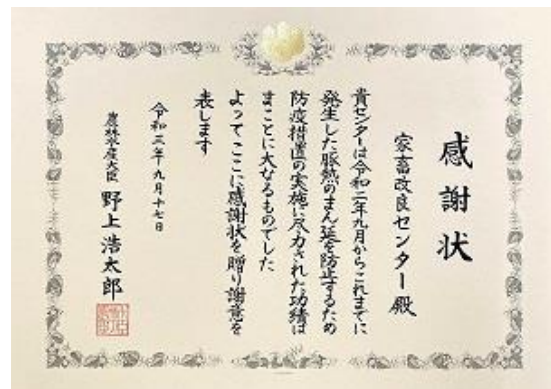 感謝状
家畜改良センター殿
貴センターは令和二年九月からこれまでに
発生した豚熱のまん延を防止するため
防疫措置の実施に尽力された功績は
まことに大なるものでした
よってここに感謝状を贈り謝意を
表します
令和三年九月十七日
農林水産大臣 野上浩太郎